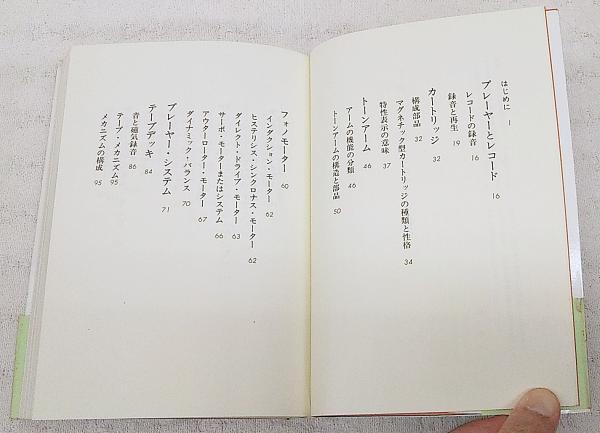 はじめに 1
プレーヤーとレコード 16
レコードの録音 16
録音と再生 19
カートリッジ 32
構成部品 32
マグネチック型カートリッジの種類と性格 34
特性表示の意味 37
トーンアーム 46
アームの機能の分類 46
トーンアームの構造と部品 50
フォノモーター 60
インダクション・モーター 62
ヒステリシス・シンクロナス・モーター 62
ダイレクト・ドライブ・モーター 63
サーボ・モーターまたはシステム 66
アウターローター・モーター 67
ダイナミック・バランス 70
プレーヤー・システム 71
テープデッキ 84
音と磁気録音 86
テープ・メカニズム 95
メカニズムの構成 95